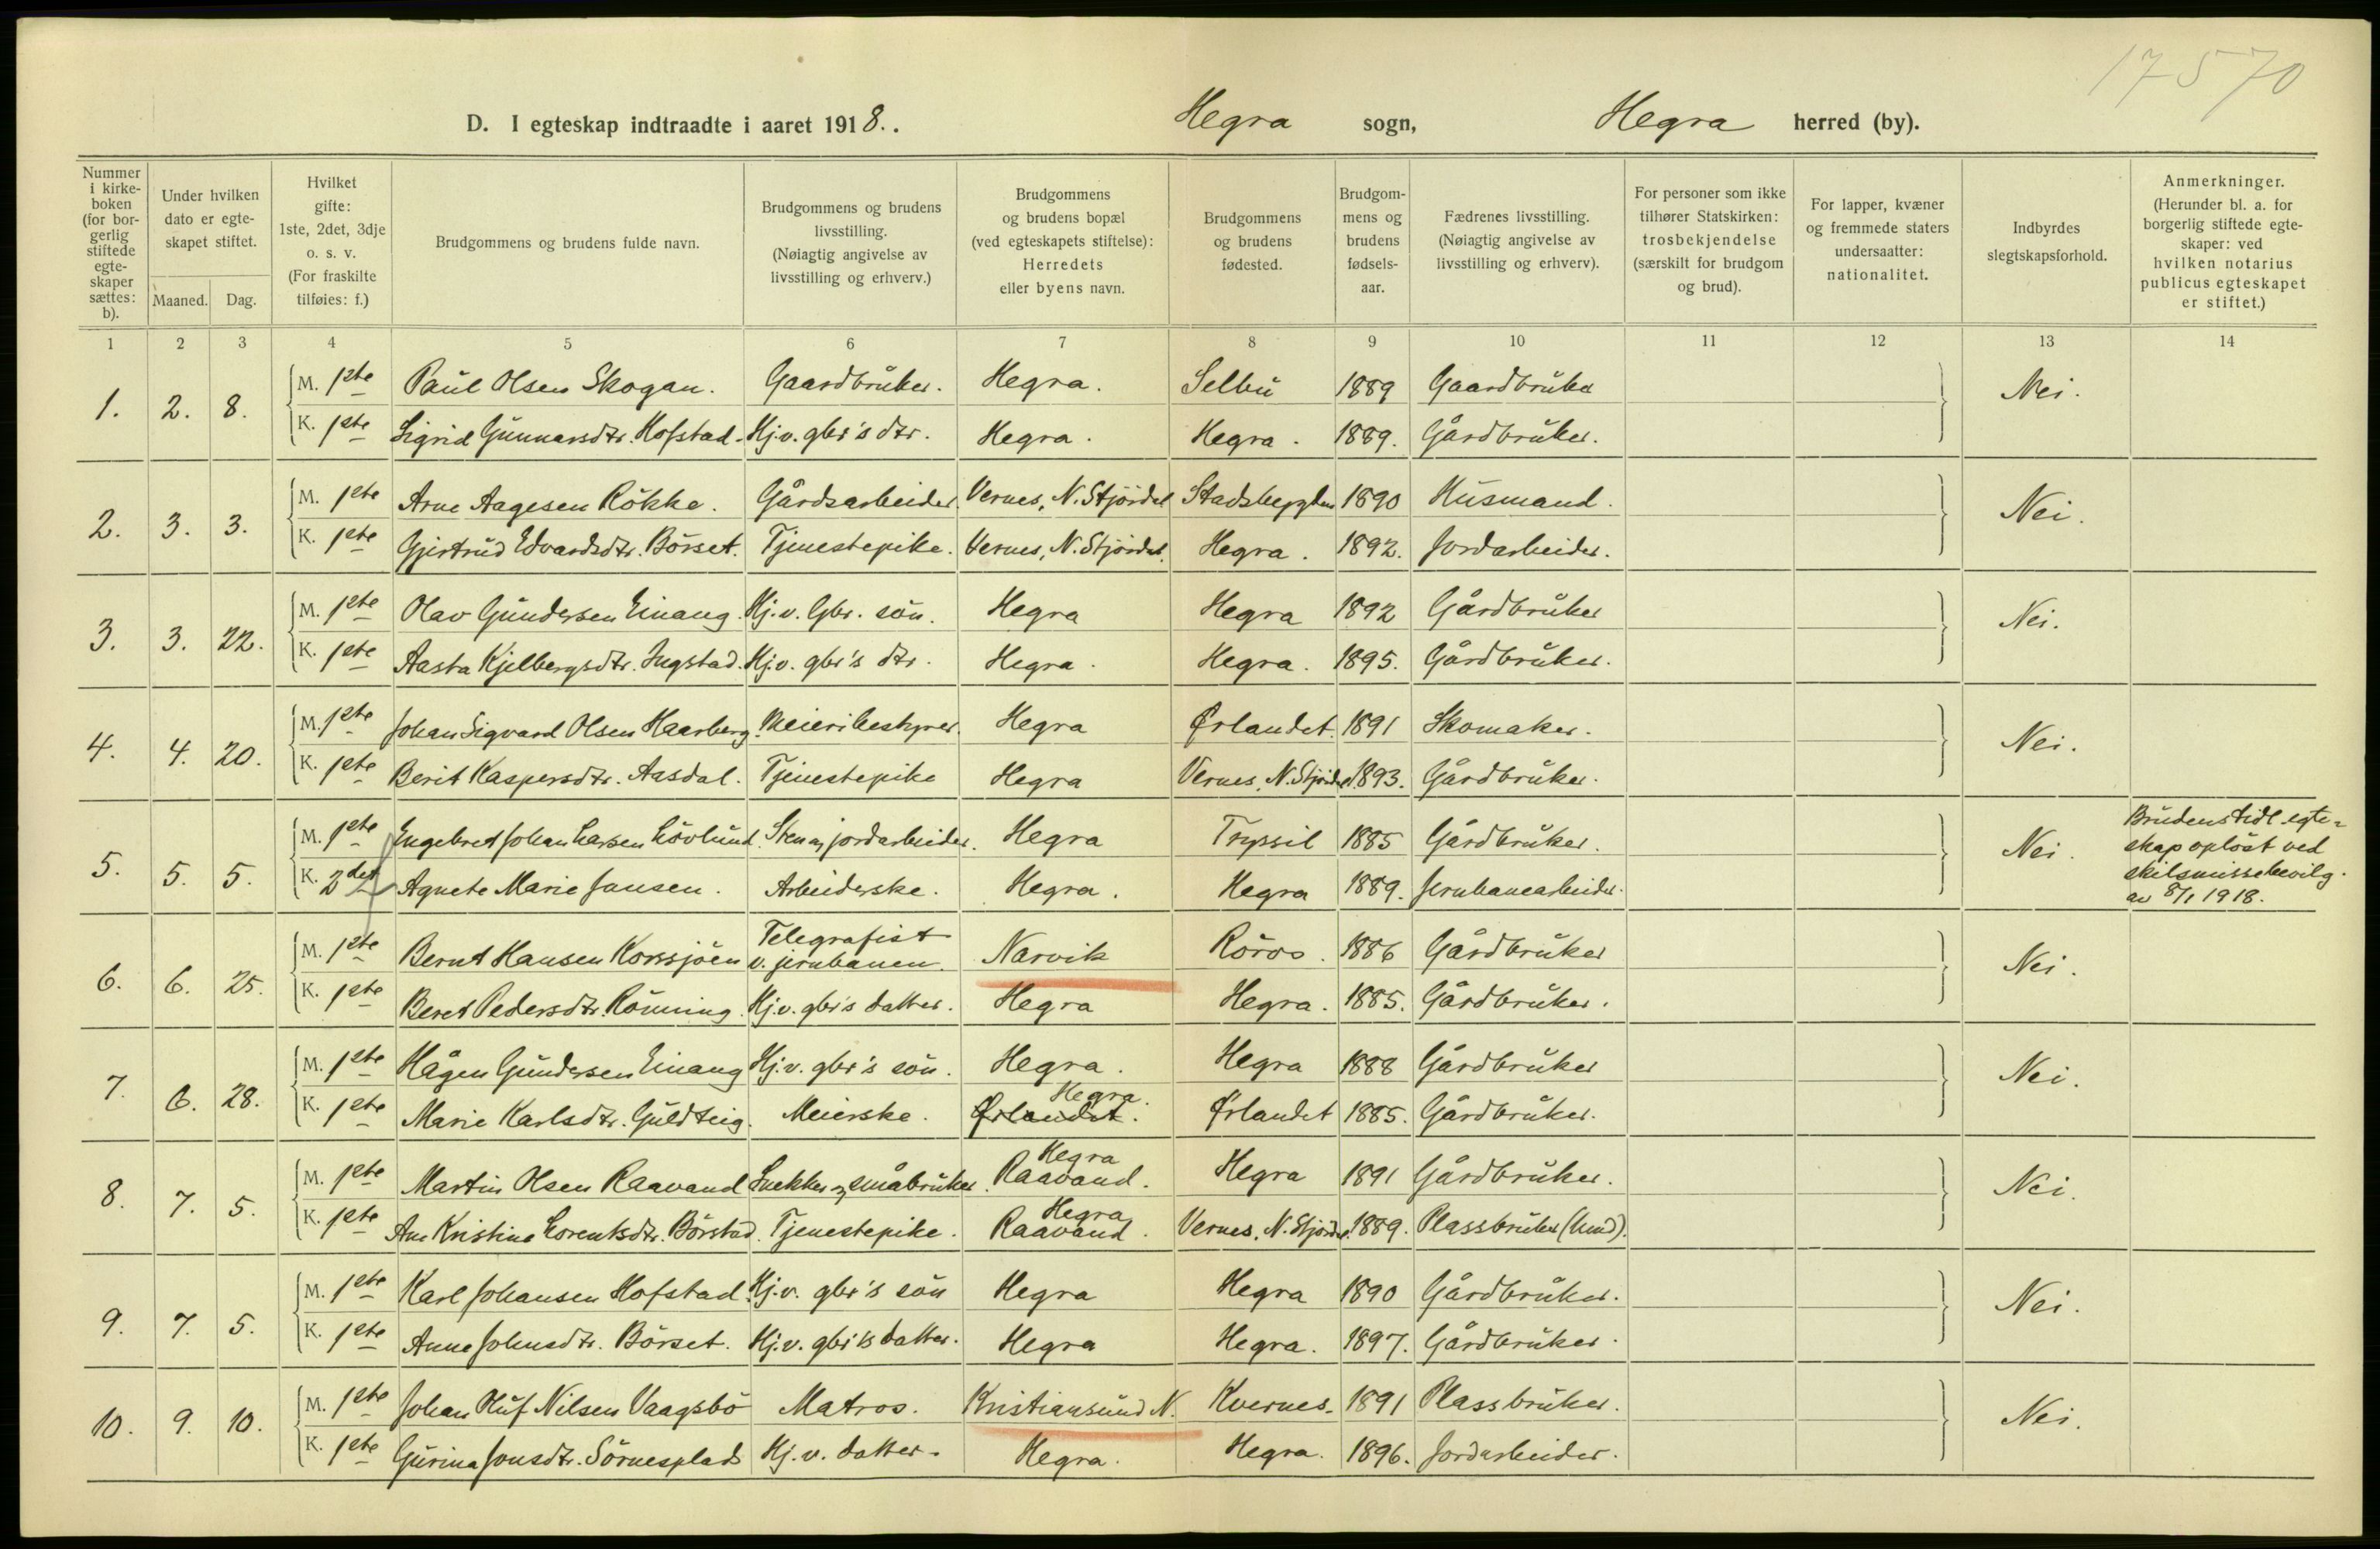 17570
D. I egteskap indtraadte i aaret 1918. . Hegra sogn, Hegra herred (by).
Nummer i kirke-boken (for bor-gerlig stiftede egte-skaper sættes: b).
Under hvilken dato er egte-skapet stiftet.
Maaned. Dag.
Hvilket gifte: 1ste, 2det, 3dje o. s. v. (For fraskilte tilføies: f.)
Brudgommens og brudens fulde navn.
Brudgommens og brudens livsstilling. (Nøiagtig angivelse av livsstilling og erhverv.)
Brudgommens og brudens bopæl (ved egteskapets stiftelse): Herredets eller byens navn.
Brudgommens og brudens fødested.
Brudgom-mens og brudens fødsels-aar.
Fædrenes livsstilling. (Nøiagtig angivelse av livsstilling og erhverv).
For personer som ikke tilhører Statskirken: trosbekjendelse (særskilt for brudgom og brud).
For lapper, kvæner og fremmede staters undersaatter: nationalitet.
Indbyrdes slegtskapsforhold.
Anmerkninger. (Herunder bl. a. for borgerlig stiftede egte-skaper: ved hvilken notarius publicus egteskapet er stiftet.)
1 2 3 4 5 6 7 8 9 10 11 12 13 14
1. 2. 8. M. 1ste Paul Olsen Skogan. Gaardbruker. Hegra. Selbu 1889 Gaardbruker Nei.
K. 1ste Sigrid Gunnarsdtr. Hofstad. Hj.v. gbr's dtr. Hegra. Hegra. 1889. Gårdbruker.
2. 3. 3. M. 1ste Arne Aagesen Rökke. Gårdsarbeider. Vernes, N. Stjördal Stadsbygden 1890 Husmand. Nei.
K. 1ste Gjertrud Edvardsdtr. Börset. Tjenestepike. Vernes, N. Stjördal. Hegra. 1892. Jordarbeider.
3. 3. 22. M. 1ste Olav Gundersen Einang. Hj.v. Gbr. sön. Hegra Hegra 1892 Gårdbruker Nei.
K. 1ste Aasta Kjelbergsdtr. Ingstad. Hj.v. gbr's dtr. Hegra. Hegra. 1895. Gårdbruker.
4. 4. 20. M. 1ste Johan Sigvard Olsen Haarberg. Meieribestyrer. Hegra Ørlandet. 1891 Skomaker. Nei.
K. 1ste Berit Kaspersdtr. Aasdal. Tjenestepike Hegra Vernes, N. Stjördal. 1893. Gårdbruker.
5. 5. 5. M. 1ste Engebret Johan Larsen Lövlund. Sten og jordarbeider. Hegra Trysil 1885 Gårdbruker. Nei. Brudens tidl. egte-
skap oplöst ved
skilsmissebevilg.
av 8/1 1918.
K. 2det Agnete Marie Jensen. Arbeiderske. Hegra. Hegra 1889. Jernbanearbeider.
6. 6. 25. M. 1ste Bernt Hansen Korssjöen Telegrafist
v. jernbanen. Narvik Röros. 1886 Gårdbruker Nei.
K. 1ste Beret Pedersdtr. Rönning. Hj.v. gbr's datter. Hegra Hegra. 1885. Gårdbruker.
7. 6. 28. M. 1ste Hågen Gundersen Einang Hj.v. gbr's sön. Hegra. Hegra 1888 Gårdbruker Nei.
Hegra.
K. 1ste Marie Karlsdtr. Guldteig. Meierske. Ørlandet. Ørlandet 1885. Gårdbruker.
Hegra
8. 7. 5. M. 1ste Martin Olsen Raavand Snekker og småbruker. Raavand. Hegra 1891 Gårdbruker. Nei.
Hegra
K. 1ste Ane Kristine Lorentsdtr. Börstad. Tjenestepike. Raavand. Vernes, N. Stjördal. 1889. Plassbruker (husmd).
9. 7. 5. M. 1ste Karl Johansen Hofstad. Hj.v. gbr's sön Hegra Hegra 1890 Gårdbruker. Nei.
K. 1ste Anne Johnsdtr. Börset. Hj.v. gbr's datter. Hegra Hegra. 1897. Gårdbruker.
10. 9. 10. M. 1ste Johan Oluf Nilsen Vaagsbö Matros. Kristiansund N. Kvernes. 1891 Plassbruker. Nei.
K. 1ste Gurina Jonsdtr. Sörnesplads Hj.v. datter. Hegra. Hegra. 1896. Jordarbeider.